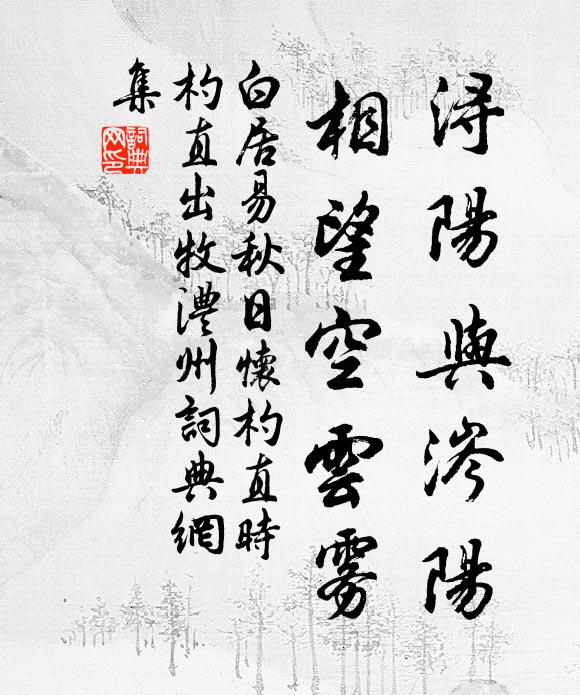 潯陽與涔陽
相望空雲雾
白居易秋日懷杓直時
杓直出牧澧州詞典網
集
詞典
网印